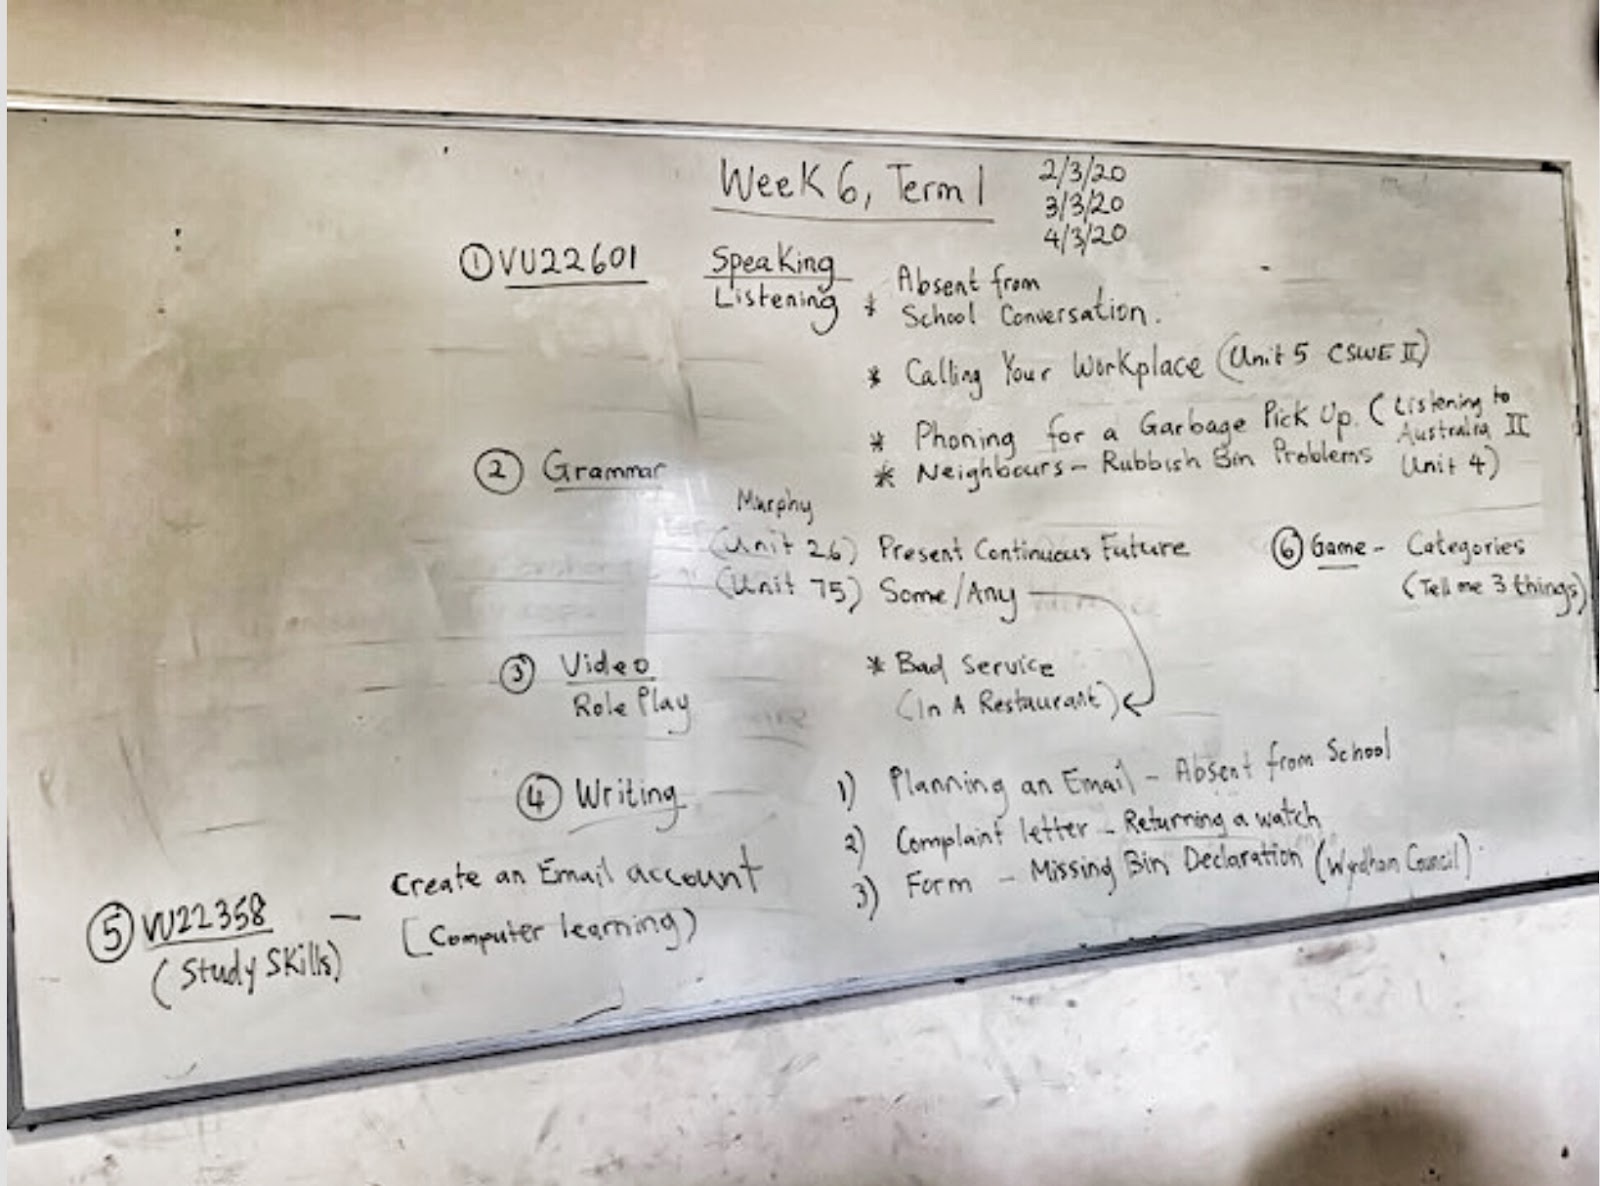 Week 6, Term 1
2/3/20
3/3/20
4/3/20
① VU22601
Speaking
Listening
* Absent from
School Conversation.
* Calling Your Workplace (Unit 5 CSWE II)
* Phoning for a Garbage Pick Up. (Listening to
Australia II
* Neighbours - Rubbish Bin Problems Unit 4)
② Grammar
Murphy
(Unit 26) Present Continuous Future
(Unit 75) Some/Any
⑥ Game - Categories
(Tell me 3 things)
③ Video
Role Play
* Bad Service
(In A Restaurant)
④ Writing
1) Planning an Email - Absent from School
2) Complaint letter - Returning a watch
3) Form - Missing Bin Declaration (Wyndham Council).
⑤ VU22358 - Create an Email account
(Study Skills) [Computer learning)